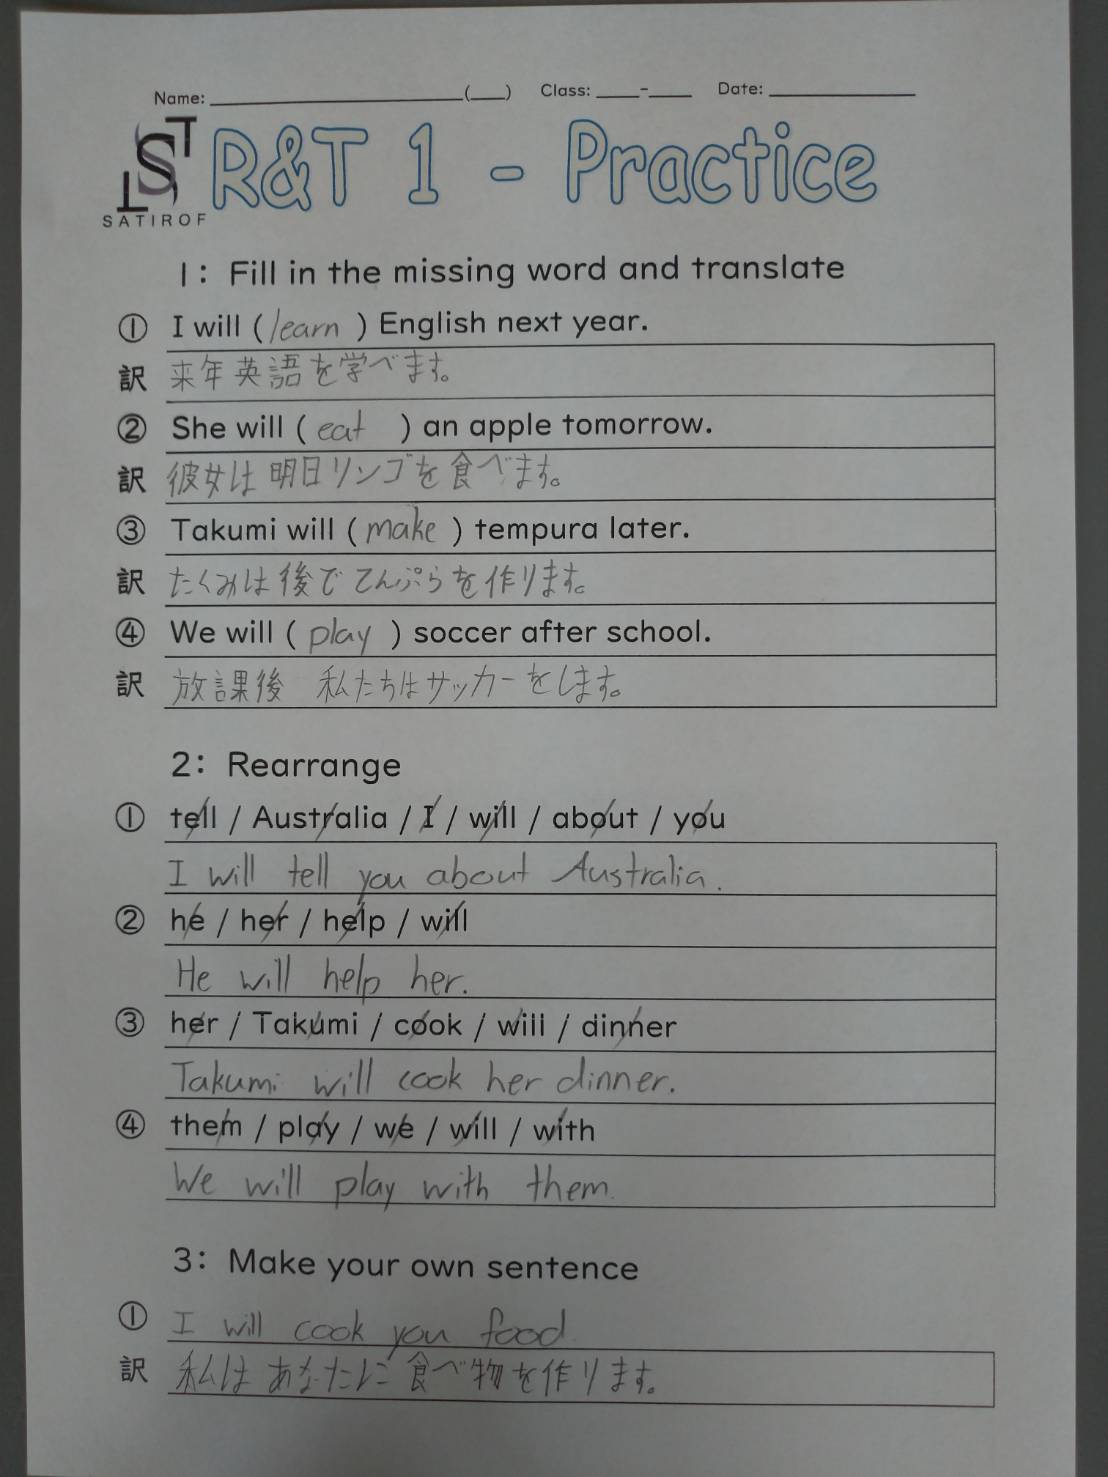 Name: ____________(___) Class: ____-____ Date: ____________
R&T 1 - Practice
SATIROF
1: Fill in the missing word and translate
① I will (learn) English next year.
訳 来年英語を学べます。
② She will (eat) an apple tomorrow.
訳 彼女は明日リンゴを食べます。
③ Takumi will (make) tempura later.
訳 たくみは後でてんぷらを作ります。
④ We will (play) soccer after school.
訳 放課後 私たちはサッカーをします。
2: Rearrange
① tell / Australia / I / will / about / you
I will tell you about Australia.
② he / her / help / will
He will help her.
③ her / Takumi / cook / will / dinner
Takumi will cook her dinner.
④ them / play / we / will / with
We will play with them.
3: Make your own sentence
① I will cook you food.
訳 私はあなたに食べ物を作ります。